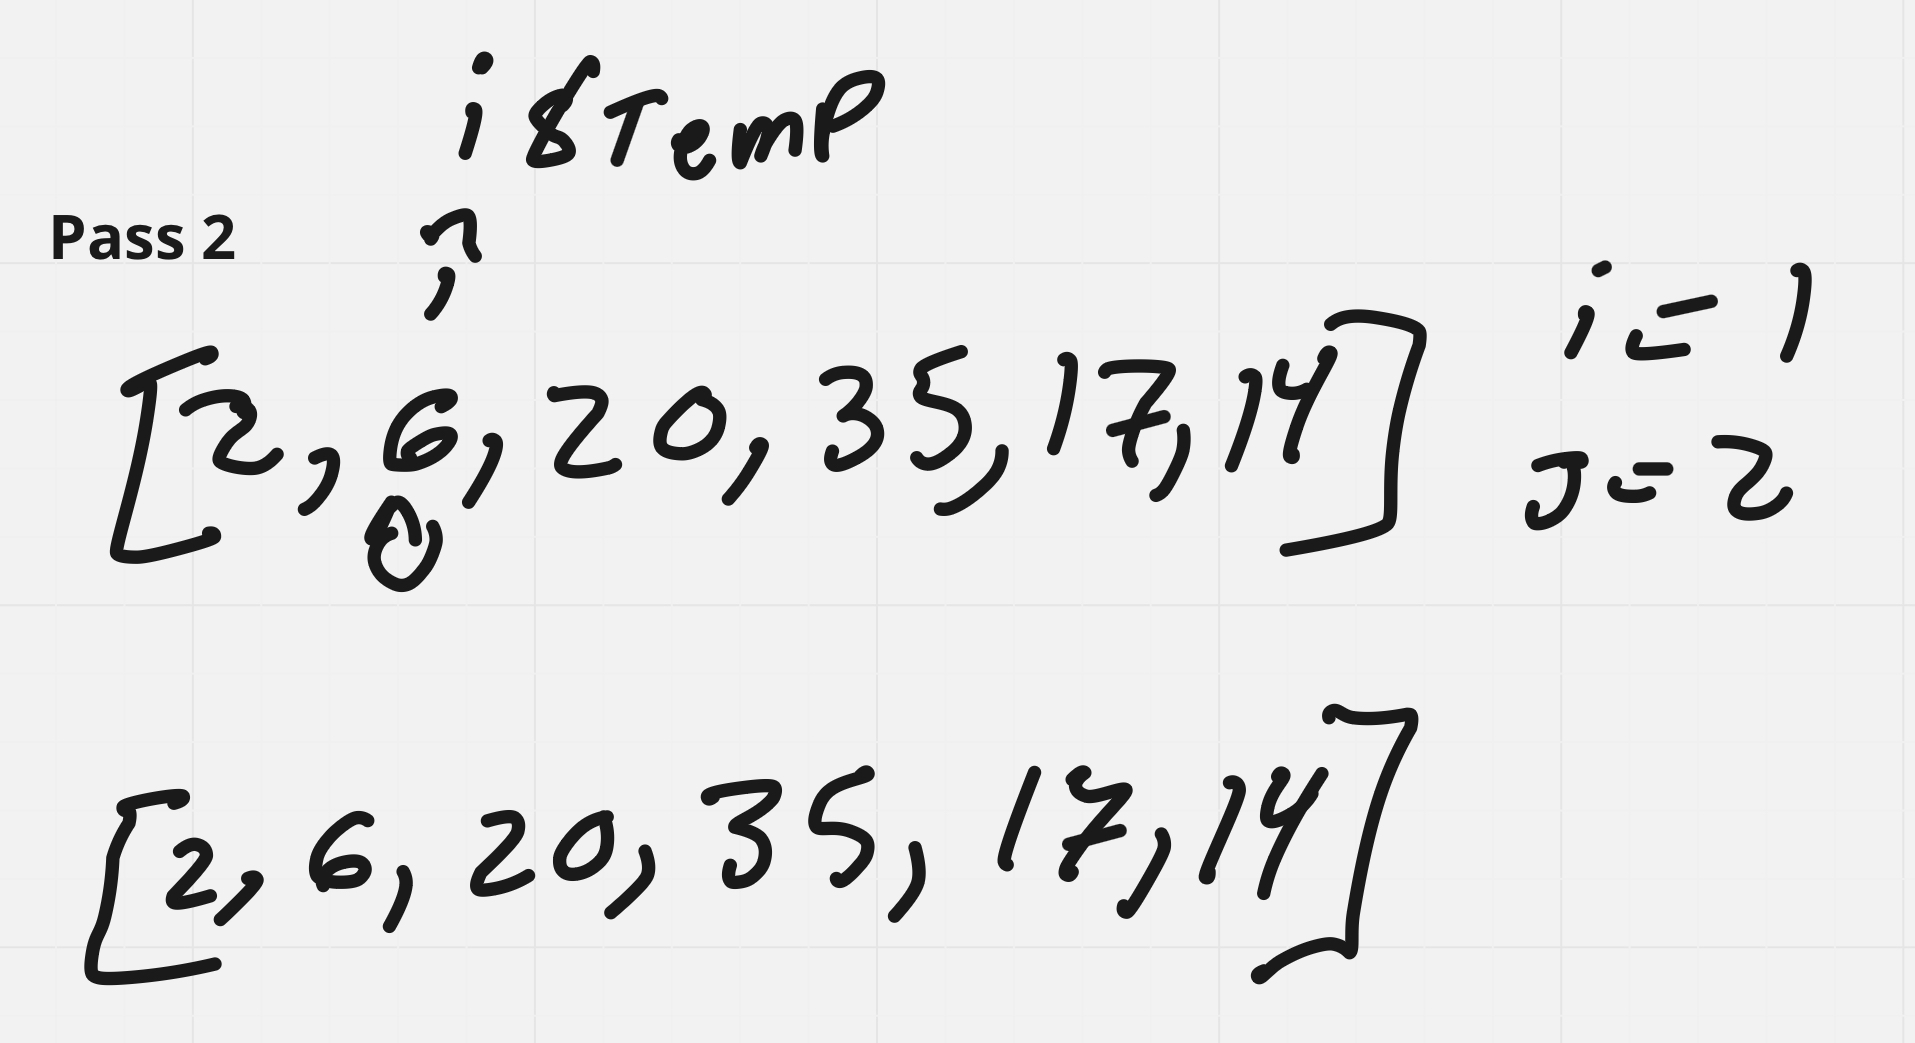 i & Temp
Pass 2
[2, 6, 20, 35, 17, 14] i = 1
J = 2
[2, 6, 20, 35, 17, 14]